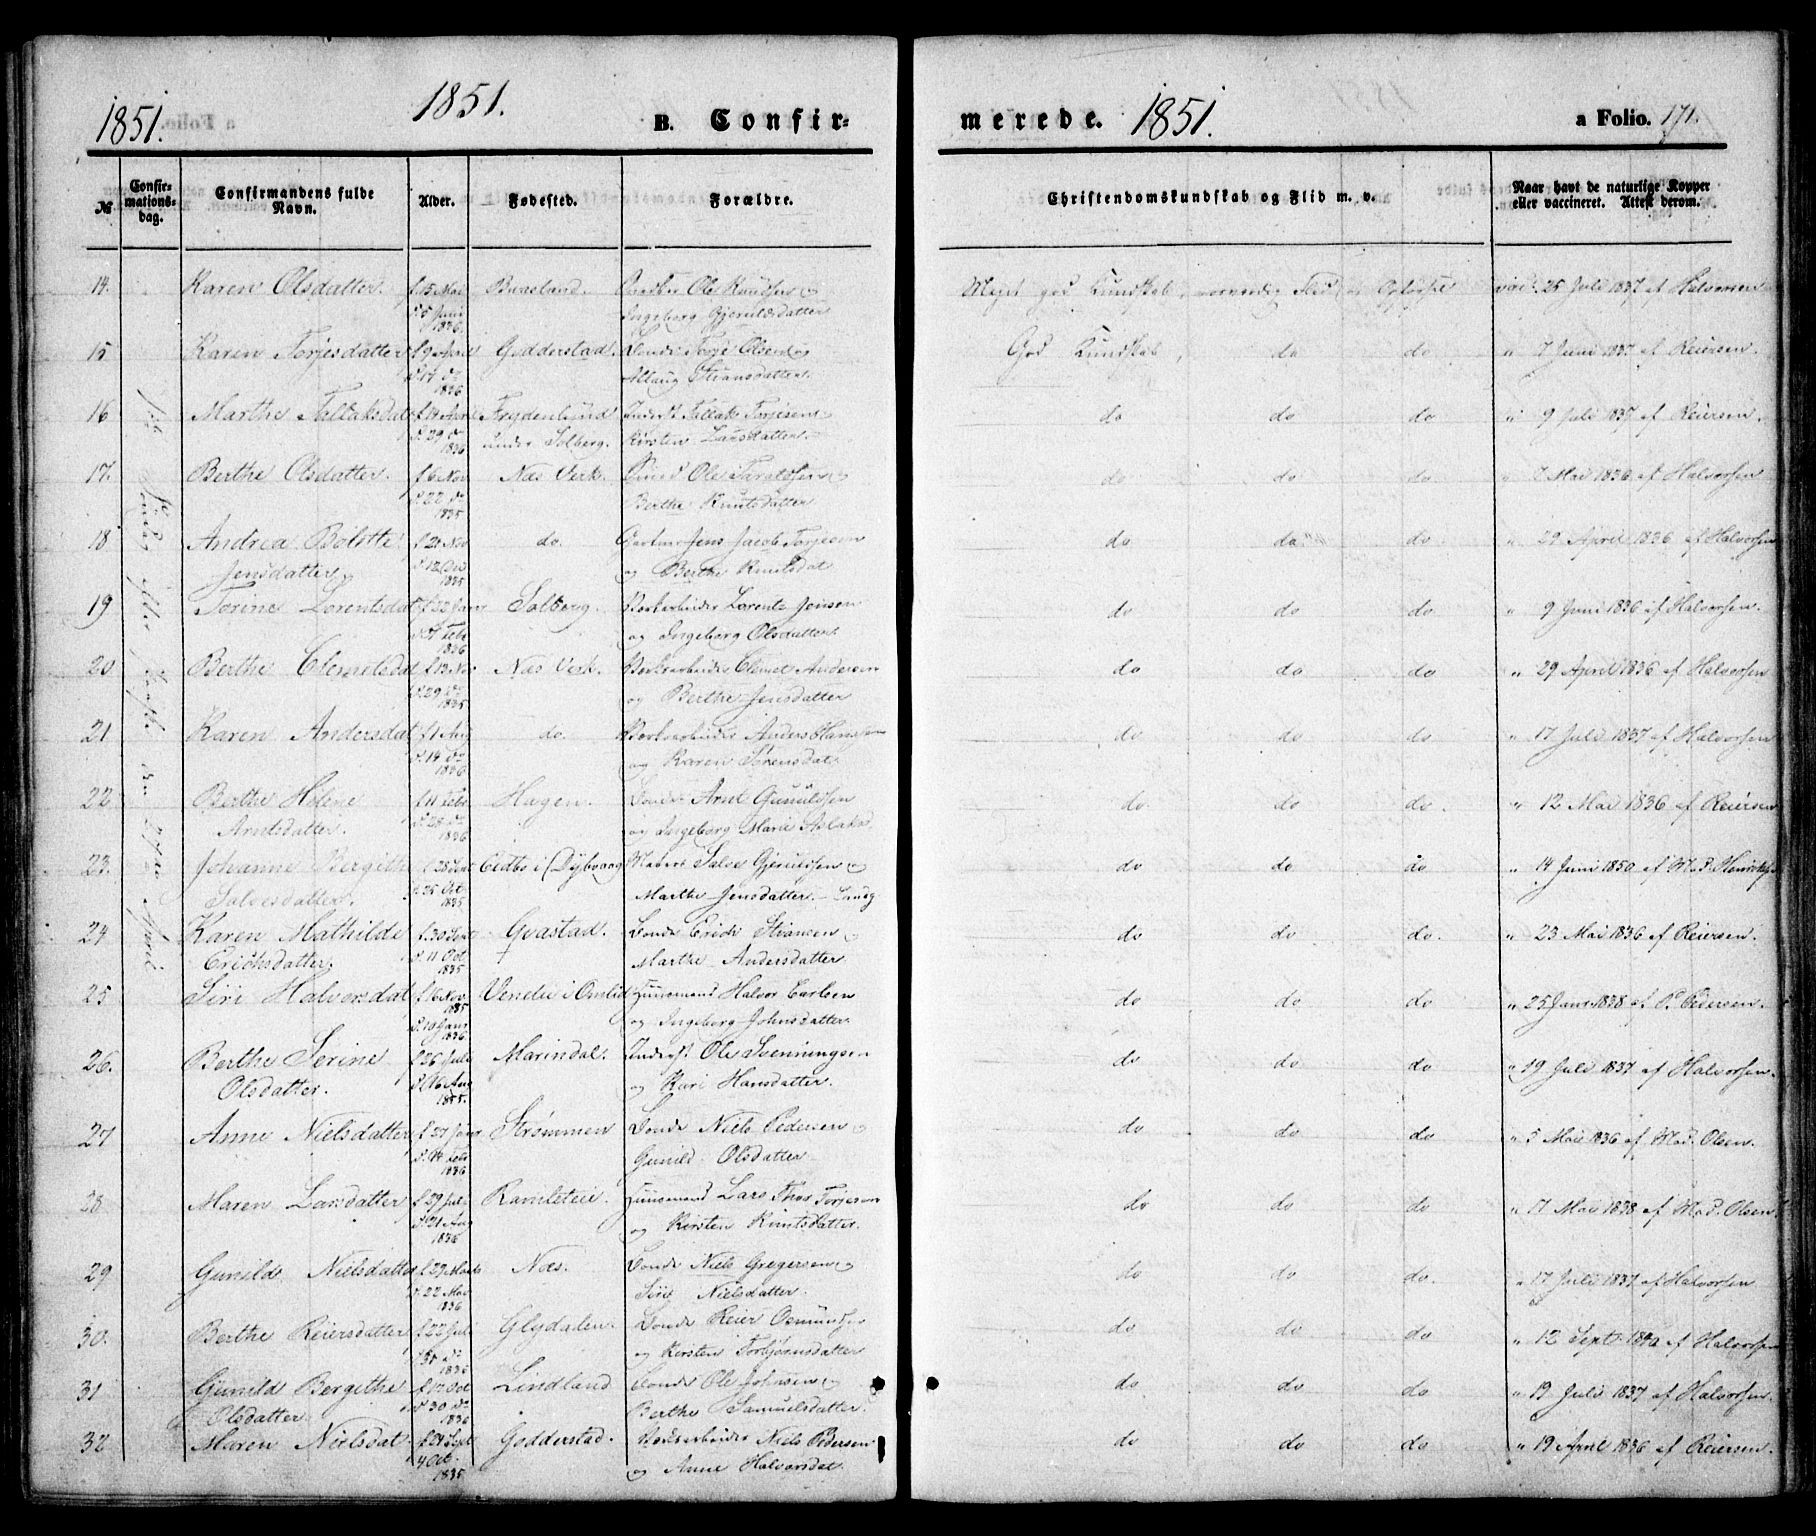 1851. 1851. B. Confir-
№ Confirmationsdag. Confirmandens fulde Navn. Alder. Fødested. Forældre.
14. Karen Olsdatter. f. 15 Mai Buasland. Ole Knudsen o
d. 5 Juni 1836 Ingeborg Gjeruldsdatter
15 Karen Torjesdatter f. 9 April Godderstad. Bonde Torje Olsen o
d. 17 do 1836 Stransdatter.
16 Marthe Tallaksdatt f. 14 April Frydenlund Inderst Tallak Torjesen o
d. 29 do 1836 under Solberg. Kirsten Larsdatter.
17. Berthe Olsdatter. f. 6 Nov Næs Verk. Smed Ole Taraldsen o
d. 22 do 1835 Berthe Knutsdatter
18 Andrea Bolette f. 21 Nov do. Jens Jacob Torjesen
Jensdatter d. 12 Dec 1835 og Berthe Knutsdat
19 Torine Lorentsdat f. 22 Janr Solberg. Verkarbeider Lorents Jensen
d. 7 Feb 1836 og Ingeborg Olsdatter
20 Berthe Clemetsdat f. 13 Nov Næs Verk. Verksarbeider Clemet Andersen
d. 29 do 1835 og Berthe Jensdatter
21 Karen Andersdat f. 1 Aug do. Verksarbeider Anders Hansen
d. 14 do 1836 og Karen Sørensdat.
22 Berthe Helene f. 11 Feb Hagen. Bonde Arnt Gunuldsen
Arntsdatter. d. 28 do 1836 og Ingeborg Marie Aslaksd.
23. Johanne Bergithe f. 28 Sept Eidbo i Dybvaag Salve Gjeruldsen o
Salvesdatter. d. 25 Oct 1835 Marthe Jensdatter.
24 Karen Mathilde f. 30 Sept Gvastad. Bonde Erich Stiansen o
Erichsdatter. d. 11 Oct 1835 Marthe Andersdatter
25 Siri Halvorsdat f. 16 Nov 1835 Vendie i Omlid Huusmand Halvor Carlsen
d. 10 Janr 1836 og Ingeborg Johnsdatter.
26. Berthe Serine f. 26 Juli Marindal. Inderst Ole Svenningsen
Olsdatter. d. 16 Aug 1835. og Kari Hansdatter.
27 Anne Nielsdatter f. 27 Janr Strømmen Bonde Niels Pedersen o
d. 14 Feb 1836 Gunild Olsdatter
28 Maren Larsdatter f. 29 Juli Ramleteie. Huusmand Lars Thos Torjesen
d. 21 Aug 1836 og Kirsten Knutsdatter.
29 Gunild Nielsdatter f. 29 Marts Næs. Bonde Niels Gregersen o
d. 22 Mai 1836 Siri Nielsdatter.
30. Berthe Reiersdatter f. 22 Juli Glydalen. Bonde Reier Osmundsen
d. 35 do 1836 og Kirsten Torbjørnsdatter
31 Gunild Bergithe f. 12 Oct Lindland Bonde Ole Johnsen o
Olsdatter d. 30 do 1836 Berthe Samuelsdatter.
32 Maren Nielsdat. f. 21 Sept Godderstad. Verksarbeider Niels Pedersen
4 Oct. 1835 og Anne Halvorsdat.
merede. 1851. a Folio. 171.
Christendomskundskab og Flid m. v. Naar havt de naturlige Kopper eller vaccineret. Attest derom.
Meget god Kundskab, Flid og Opførsel vac. 25 Juli 1837 af Halvorsen
God Kundskab, do do " 7 Juni 1837 af Reiersen.
do do do " 9 Juli 1837 af Reiersen.
do do do " 7 Mai 1836 af Halvorsen
do do do " 29 April 1836 af Halvorsen
do do do " 9 Juni 1836 af Halvorsen.
do do do " 29 April 1836 af Halvorsen
do do do " 17 Juli 1837 af Halvorsen
do do do. " 12 Mai 1836 af Reiersen
do do do " 14 Juni 1850 af Mad.
do do do. " 23 Mai 1836 af Reiersen.
do do do " 25 Janr 1838 af P. Pedersen.
do do do " 19 Juli 1837 af Halvorsen.
do do do " 5 Mai 1836 af Mad. Olsen.
do do do " 17 Mai 1838 af Mad. Olsen
do do do. " 17 Juli 1837 af Halvorsen
do do do " 12 Sept 1840 af Halvorsen
do do do " 19 Juli 1837 af Halvorsen.
do do do " 19 April 1836 af Reiersen.